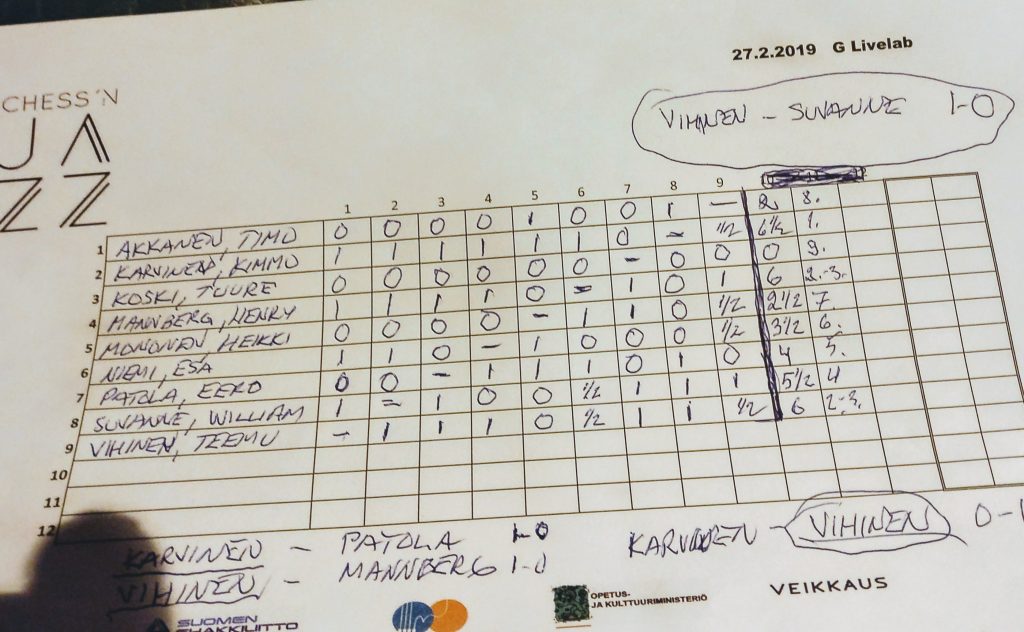 27.2.2019 G Livelab
CHESS'N
JAZZ
VIHINEN - SUVANNE 1-0
1 2 3 4 5 6 7 8 9
1 AKKANEN, TIMO 0 0 0 0 1 0 0 1 — 2 8.
2 KARVINEN, KIMMO 1 1 1 1 1 1 0 - 1/2 6 1/2 1.
3 KOSKI, TUURE 0 0 0 0 0 0 - 0 0 0 9.
4 MANNBERG, HENRY 1 1 1 1 0 - 1 0 1 6 2.-3.
5 MONONEN, HEIKKI 0 0 0 0 - 1 1 0 1/2 2 1/2 7
6 NIEMI, ESA 1 1 0 - 1 0 0 0 1/2 3 1/2 6.
7 PATOLA, EERO 0 0 - 1 1 1 0 1 0 4 5.
8 SUVANNE, WILLIAM 1 - 1 0 0 1/2 1 1 1 5 1/2 4
9 VIHINEN, TEEMU - 1 1 1 0 1/2 1 1 1/2 6 2.-3.
10
11
12
KARVINEN - PATOLA 1-0
VIHINEN - MANNBERG 1-0
KARVINEN - VIHINEN 0-1
SUOMEN
SHAKKILIITTO
OPETUS-
JA KULTTUURIMINISTERIÖ
VEIKKAUS